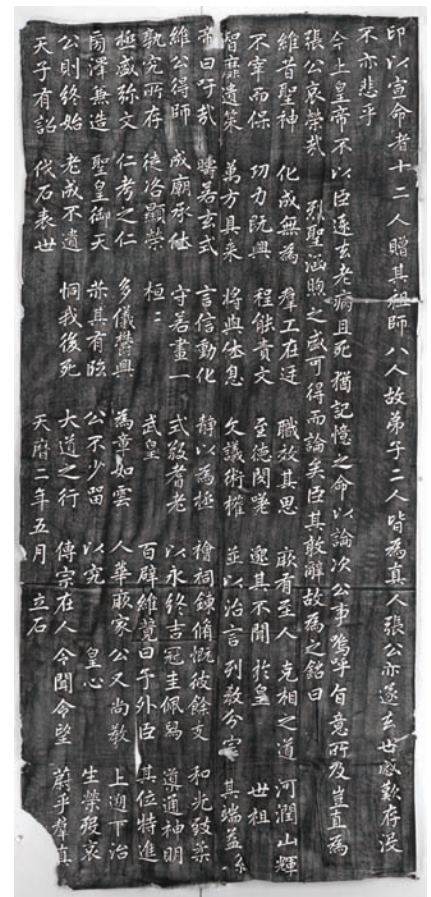 印以宣命者十二人贈其祖師八人故弟子二人皆為真人張公亦遂去世感歎存沒
不亦悲乎
今上皇帝不以臣遠去老病且死猶記憶之命以論次公事嗚呼旨意所及豈直為
張公哀榮哉 烈聖涵煦之盛可得而論矣臣其敢辭故為之銘曰
維昔聖神 化成無為 羣工在廷 職效其思 厥有至人 克相之道 河潤山輝
不宰而保 功力既興 程能責文 至德閔嘿 邈其不聞 於皇 世祖
智靡遺策 萬方具来 將與休息 議術權 並以治言 列敎分宗 其端益
帝曰吁哉 疇若玄式 言信動化 靜以為極 禬祠鍊脩 慨彼餘支 和光致柔
維公得師 成廟承休 守若畫一 式敬耆老 以永終吉 冠圭佩舄 道通神明
孰究所存 徒洛顯榮 桓二 武皇 百辟維覺 曰予外臣 其位特進
極盛弥文 仁考之仁 多儀欝興 為章如雲 人華厥家 公又尚敎 上遡下治
澤兼造 聖皇御天 其有臨 公不少留 以究 皇心 生榮殁哀
公則終始 老成不遺 恫我後死 大道之行 傳宗在人 令聞令望 蔚乎羣真
天子有詔 伐石表世 天曆二年五月 立石